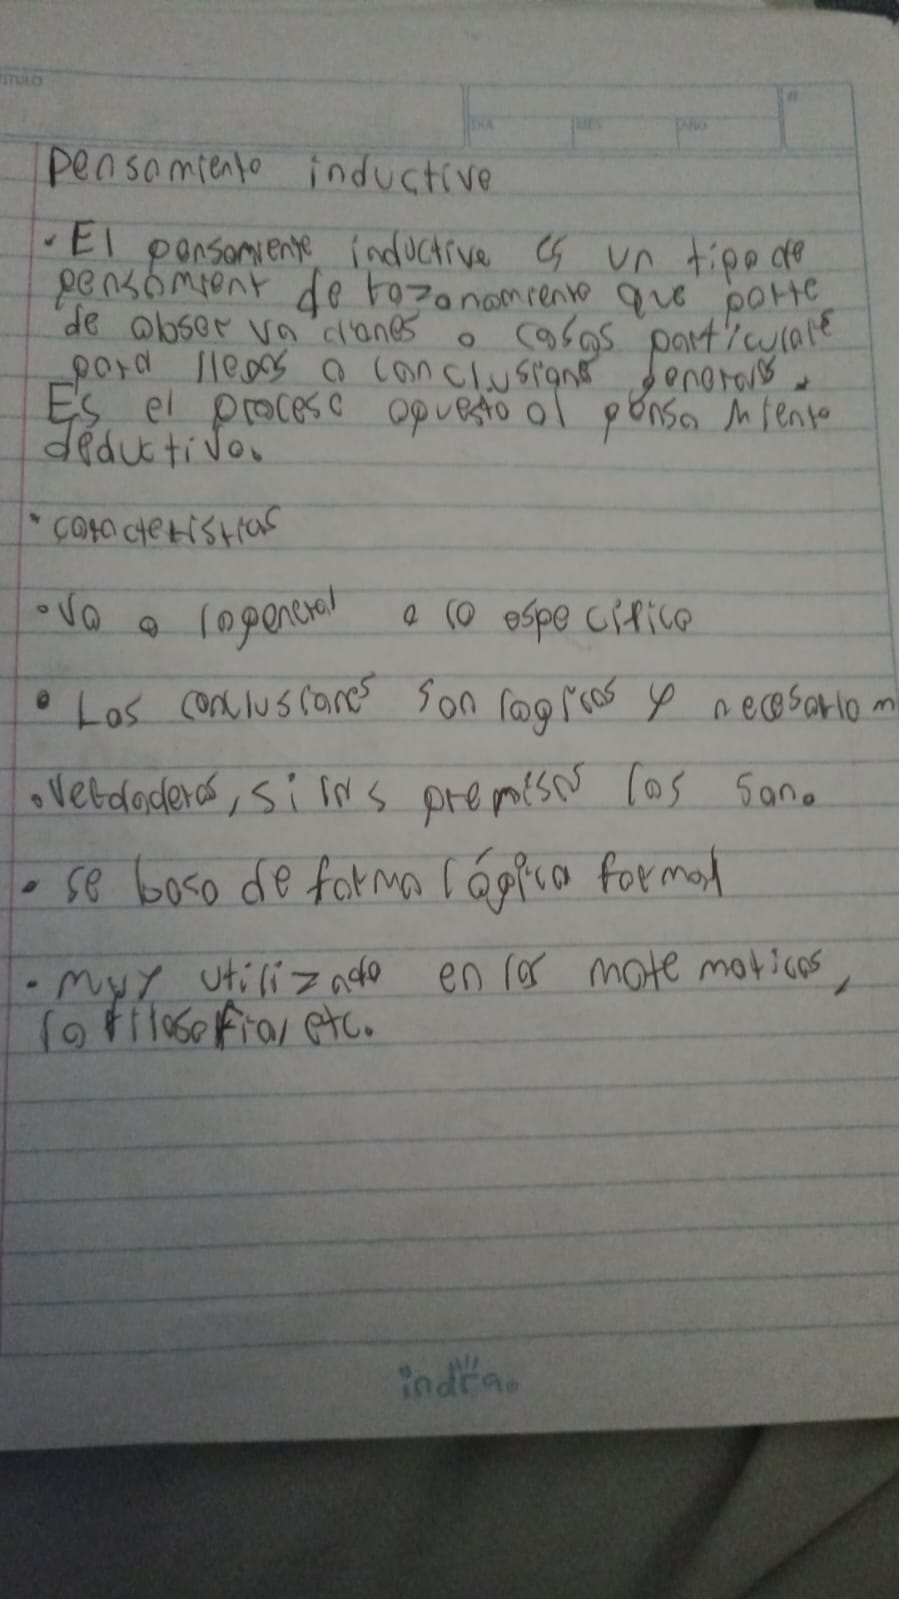 TITULO
DIA MES AÑO #
pensamiento inductive
• El pensamiente inductive es un tipo de
pensamient de razonamiento que parte
de observaciones o casos particulare
para llegas a conclusiones generales.
Es el procese opuesto al pensamiento
deductivo.
• caracteristias
• va a lo general a lo especifico
• Las conclusiones son logicas y necesariam
• verdaderas, si las premisas las son.
• se basa de forma lógica formal
• muy utilizado en las matematicas,
la filosofia, etc.
indra.